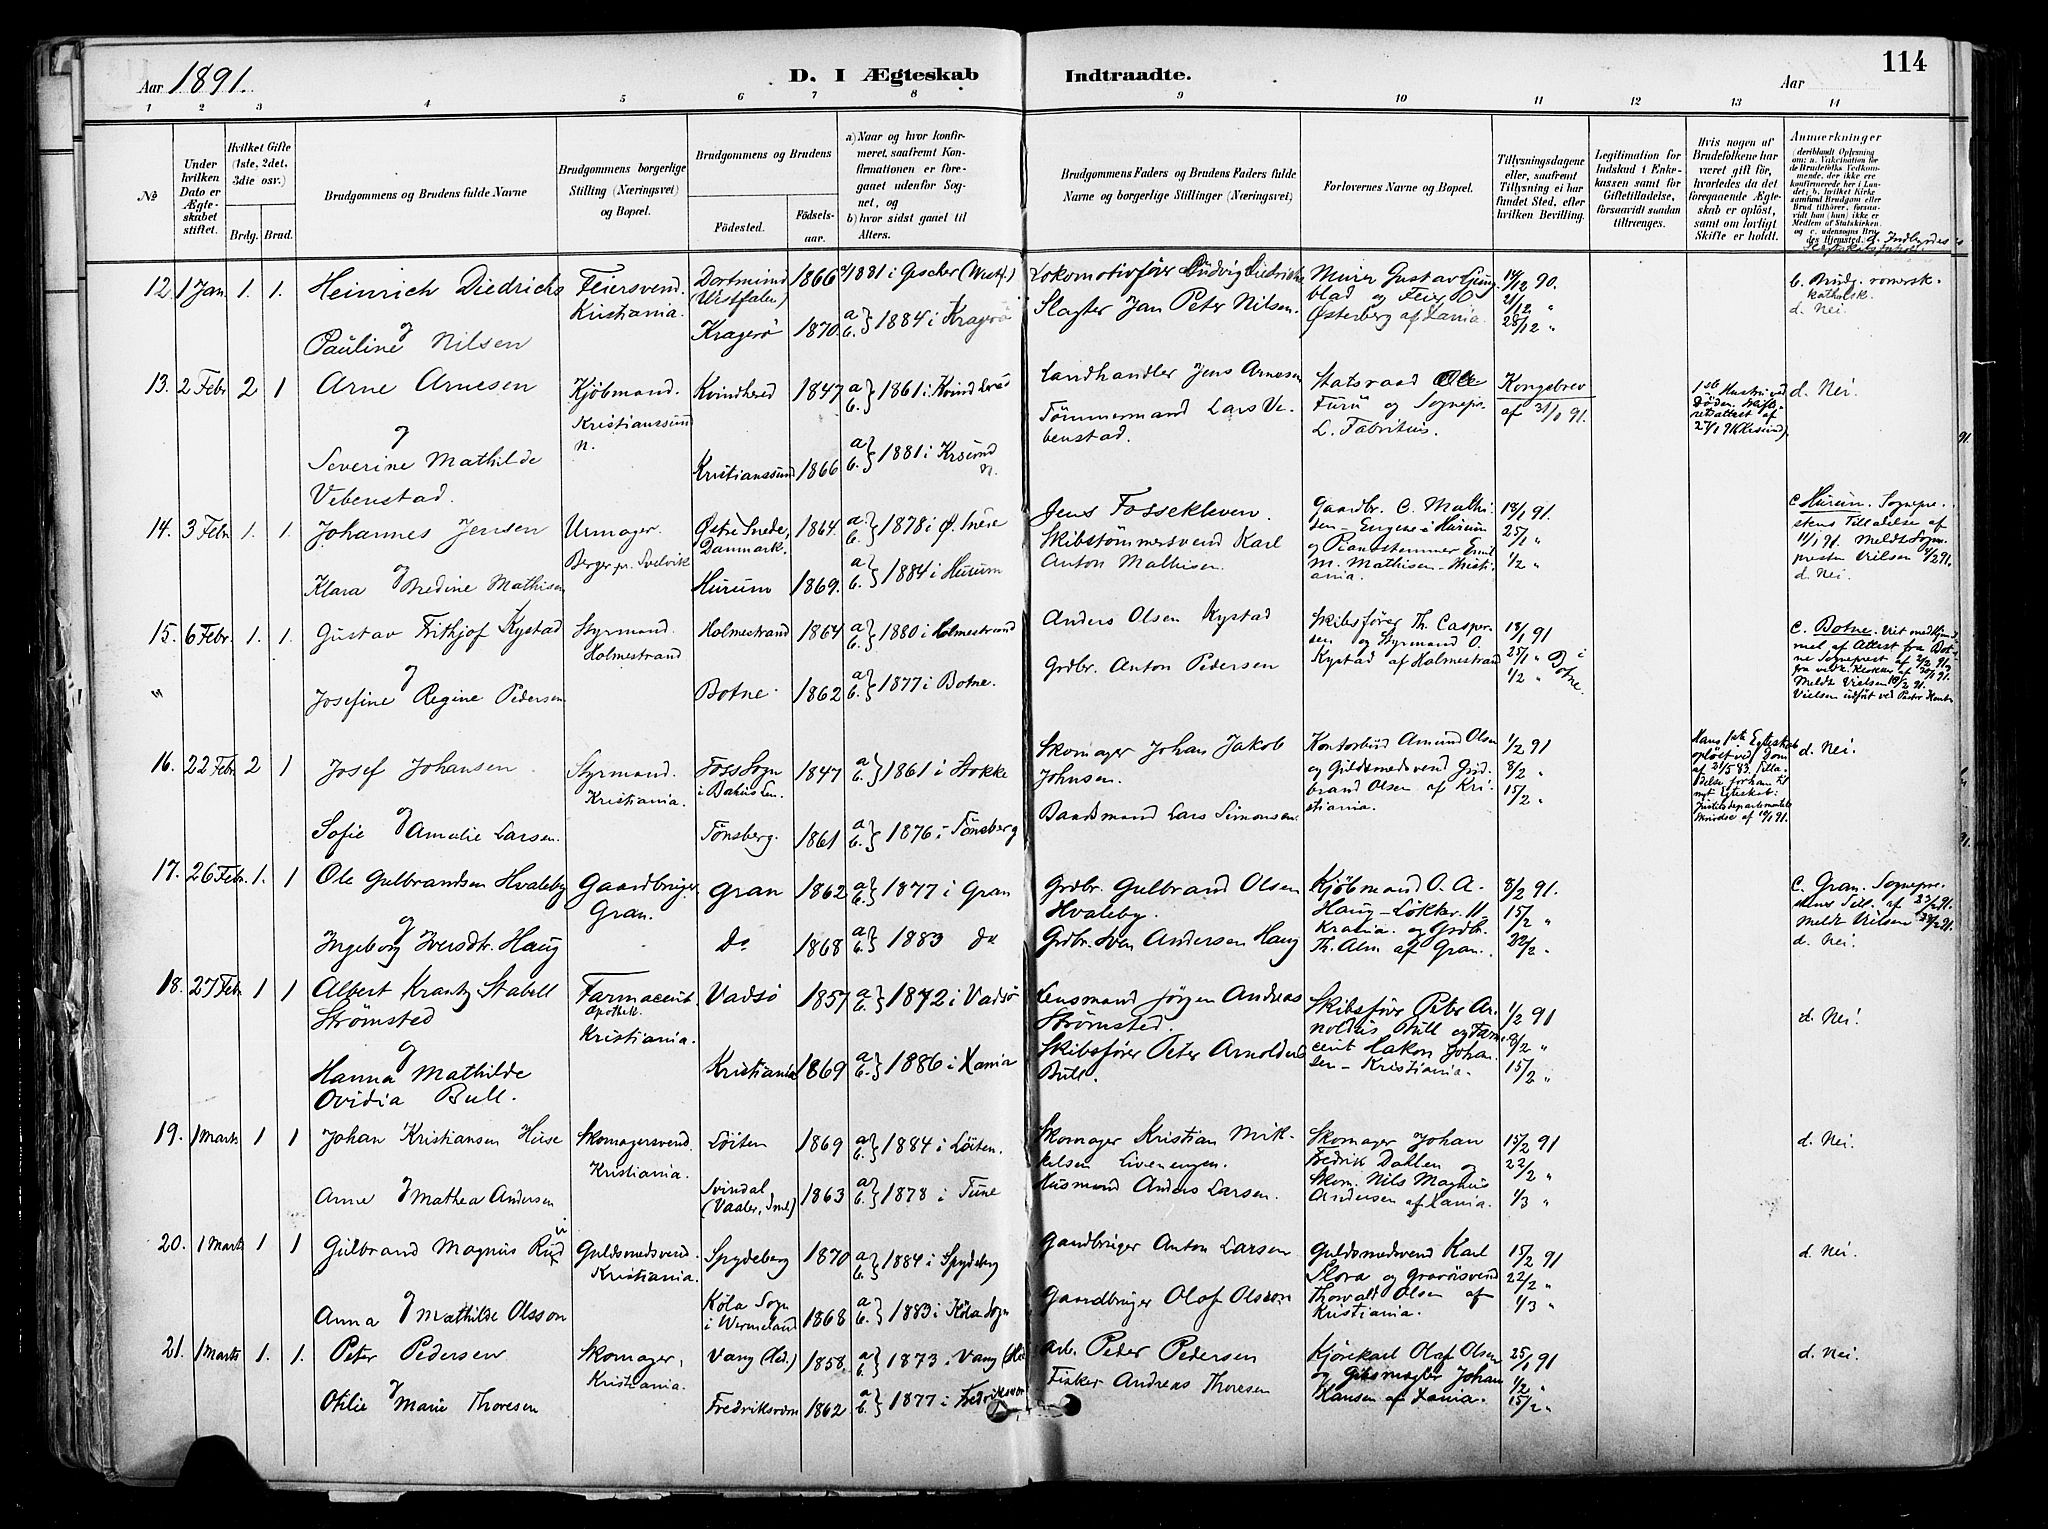 114
Aar 1891.
D. I Ægteskab Indtraadte.
Aar
1 2 3 4 5 6 7 8 9 10 11 12 13 14
№
Under hvilken Dato er Ægteskabet stiftet.
Hvilket Gifte (1ste, 2det, 3die osv.)
Brdg. Brud.
Brudgommens og Brudens fulde Navne
Brudgommens borgerlige Stilling (Næringsvei) og Bopæl.
Brudgommens og Brudens
Fødested. Fødselsaar.
a) Naar og hvor konfirmeret, saafremt Konfirmationen er foregaaet udenfor Sognet, og
b) hvor sidst gaaet til Alters.
Brudgommens Faders og Brudens Faders fulde Navne og borgerlige Stillinger (Næringsvei)
Forlovernes Navne og Bopæl.
Tillysningsdagene eller, saafremt Tillysning ei har fundet Sted, efter hvilken Bevilling.
Legitimation for Indskud i Enkekassen samt for Giftetilladelse, forsaavidt saadan tiltrænges.
Hvis nogen af Brudefolkene har været gift før, hvorledes da det foregaaende Ægteskab er opløst, samt om lovligt Skifte er holdt.
Anmærkninger (deriblandt Oplysning om: a. Vakcination for de Brudefolks Vedkommende, der ikke ere konfirmerede her i Landet; b. hvilket Kirkesamfund Brudgom eller Brud tilhører, forsaavidt han (hun) ikke er Medlem af Statskirken, og c. udensogns Brudes Hjemsted.
12. 1 Jan. 1. 1. Heinrich Diedrichs Feiersvend. Kristiania. Dortmund (Westfalen) 1866 a/ 1881 i Gescher (Westf.) Lokomotivfører Ludvig Diedrichs Murer Gustav Ljungblad og Feier O Østerberg af Xania. 14/12 90. 21/12 " 28/12 " b. Brudg. romersk-katholsk. d. Nei.
og
Pauline Nilsen Kragerö 1870 a b. } 1884 i Kragerö Slagter Jan Peter Nilsen.
13. 2 Febr 2 1 Arne Arnesen Kjöbmand. Kristianssund n. Kvindhered 1847 a b. } 1861 i Kvindhered Landhandler Jens Arnesen Statsraad Ole Furu og Sognepr. L. Fabritius. Kongebrev af 31/1 91. 1ste Hustru ved Döden. Skifteretsattest af 27/1 91 (Krsund). d. Nei.
og
Severine Mathilde Vebenstad. Kristianssund 1866 a b. } 1881 i Krsund n. Tömmermand Lars Vebenstad.
14. 3 Febr 1. 1. Johannes Jensen Urmager. Berger pr. Svelvik Østre Snede, Danmark. 1864. a b. } 1878 i Ø. Snede Jens Fossekleven. Gaardbr. C. Mathisen – Engene i Hurum og Pianostemmer Emil M. Mathisen – Kristiania. 18/1 91. 25/1 " 1/2 " c Hurum. Sogneprestens Tilladelse af 14/1 91. Meldt Sognepresten Vielsen 4/2 91. d. Nei.
og
Klara Bredine Mathisen Hurum 1869. a b. } 1884 i Hurum Skibstömmersvend Karl Anton Mathisen.
15. 6 Febr. 1. 1. Gustav Frithjof Kystad Styrmand. Holmestrand Holmestrand 1864 a b. } 1880 i Holmestrand Anders Olsen Kystad Skibsförer Th. Caspersen og Styrmand O. Kystad af Holmestrand 18/1 91 25/1 " 1/2 " i Botne. c. Botne.
" og
Josefine Regine Pedersen Botne. 1862 a b. } 1877 i Botne. Grdbr. Anton Pedersen
16. 22 Febr 2 1 Josef Johansen. Styrmand. Kristiania. Foss Sogn i Bahus Len. 1847 a b. } 1861 i Stokke Skomager Johan Jakob Johnsen. Kontorbud Amund Olsen og Guldsmedsvend Gudbrand Olsen af Kristiania. 1/2 91 8/2 " 15/2 " d. Nei.
og
Sofie Amalie Larsen. Tönsberg. 1861 a b. } 1876 i Tönsberg Baadsmand Lars Simonsen.
17. 26 Febr. 1. 1 Ole Gulbrandsen Hvaleby Gaardbruger Gran. Gran 1862 a b. } 1877 i Gran Grdbr. Gulbrand Olsen Hvaleby. Kjöbmand O. A. Haug – Løkker. 11, Krania. og Grdbr. Th. Alm af Gran. 8/2 91. 15/2 " 22/2 " C. Gran. Sogneprestens Till. af 23/2 91. Meldt Vielsen 28/2 91. d. Nei.
og
Ingeborg Iversdtr. Haug do 1868 a b. } 1883 do Grdbr. Iver Andersen Haug
18. 27 Febr 1 1 Albert Krantz Stabell Strømsted Farmaceut Apothek. Kristiania. Vadsö 1857 a b. } 1872 i Vadsö Lensmand Jörgen Andreas Strømsted. Skibsförer Peter Arnoldus Bull og Farmaceut Hakon Johansen – Kristiania. 1/2 91 8/2 " 15/2 " d. Nei.
og
Hanna Mathilde Ovidia Bull. Kristiania 1869 a b. } 1886 i Xania Skibsförer Peter Arnoldus Bull.
19. 1 Marts 1 1 Johan Kristiansen Huse Skomagersvend Kristiania. Löiten 1869 a b. } 1884 i Löiten. Skomager Kristian Mikkelsen Skomager Johan Fredrik Dahlen og Skom. Nils Magnus Andersen af Xania. 15/2 91 22/2 " 1/3 " d. Nei.
og
Anne Mathea Andersen Svindal (Vaaler, Sml) 1863 a b. } 1878 i Tune Husmand Anders Larsen.
20. 1 Marts 1 1 Gulbrand Magnus Rud Guldsmedsvend Kristiania. Spydeberg 1870 a b. } 1884 i Spydeberg Gaardbruger Anton Larsen Guldsmedsvend Karl Slora og Gravörsvend Thorvald Olsen af Kristiania. 15/2 91 22/2 " 1/3 " d. Nei.
og
Anna Mathilde Olsson Köla Sogn i Wermeland 1868 a b. } 1883 i Köla Sogn Gaardbruger Olof Olsson.
21. 1 Marts 1. 1. Peter Pedersen Skomager, Kristiania. Vang (Hed.) 1858. a b. } 1873 i Vang (Hed Arb. Peder Pedersen Kjörekarl Olaf Olsen og Johan Hansen af Xania. 25/1 91 1/2 " 15/2 " d. Nei.
og
Otilie Marie Thoresen Fredriksværn 1862 a b. } 1877 i Fredriksværn Fisker Andreas Thoresen